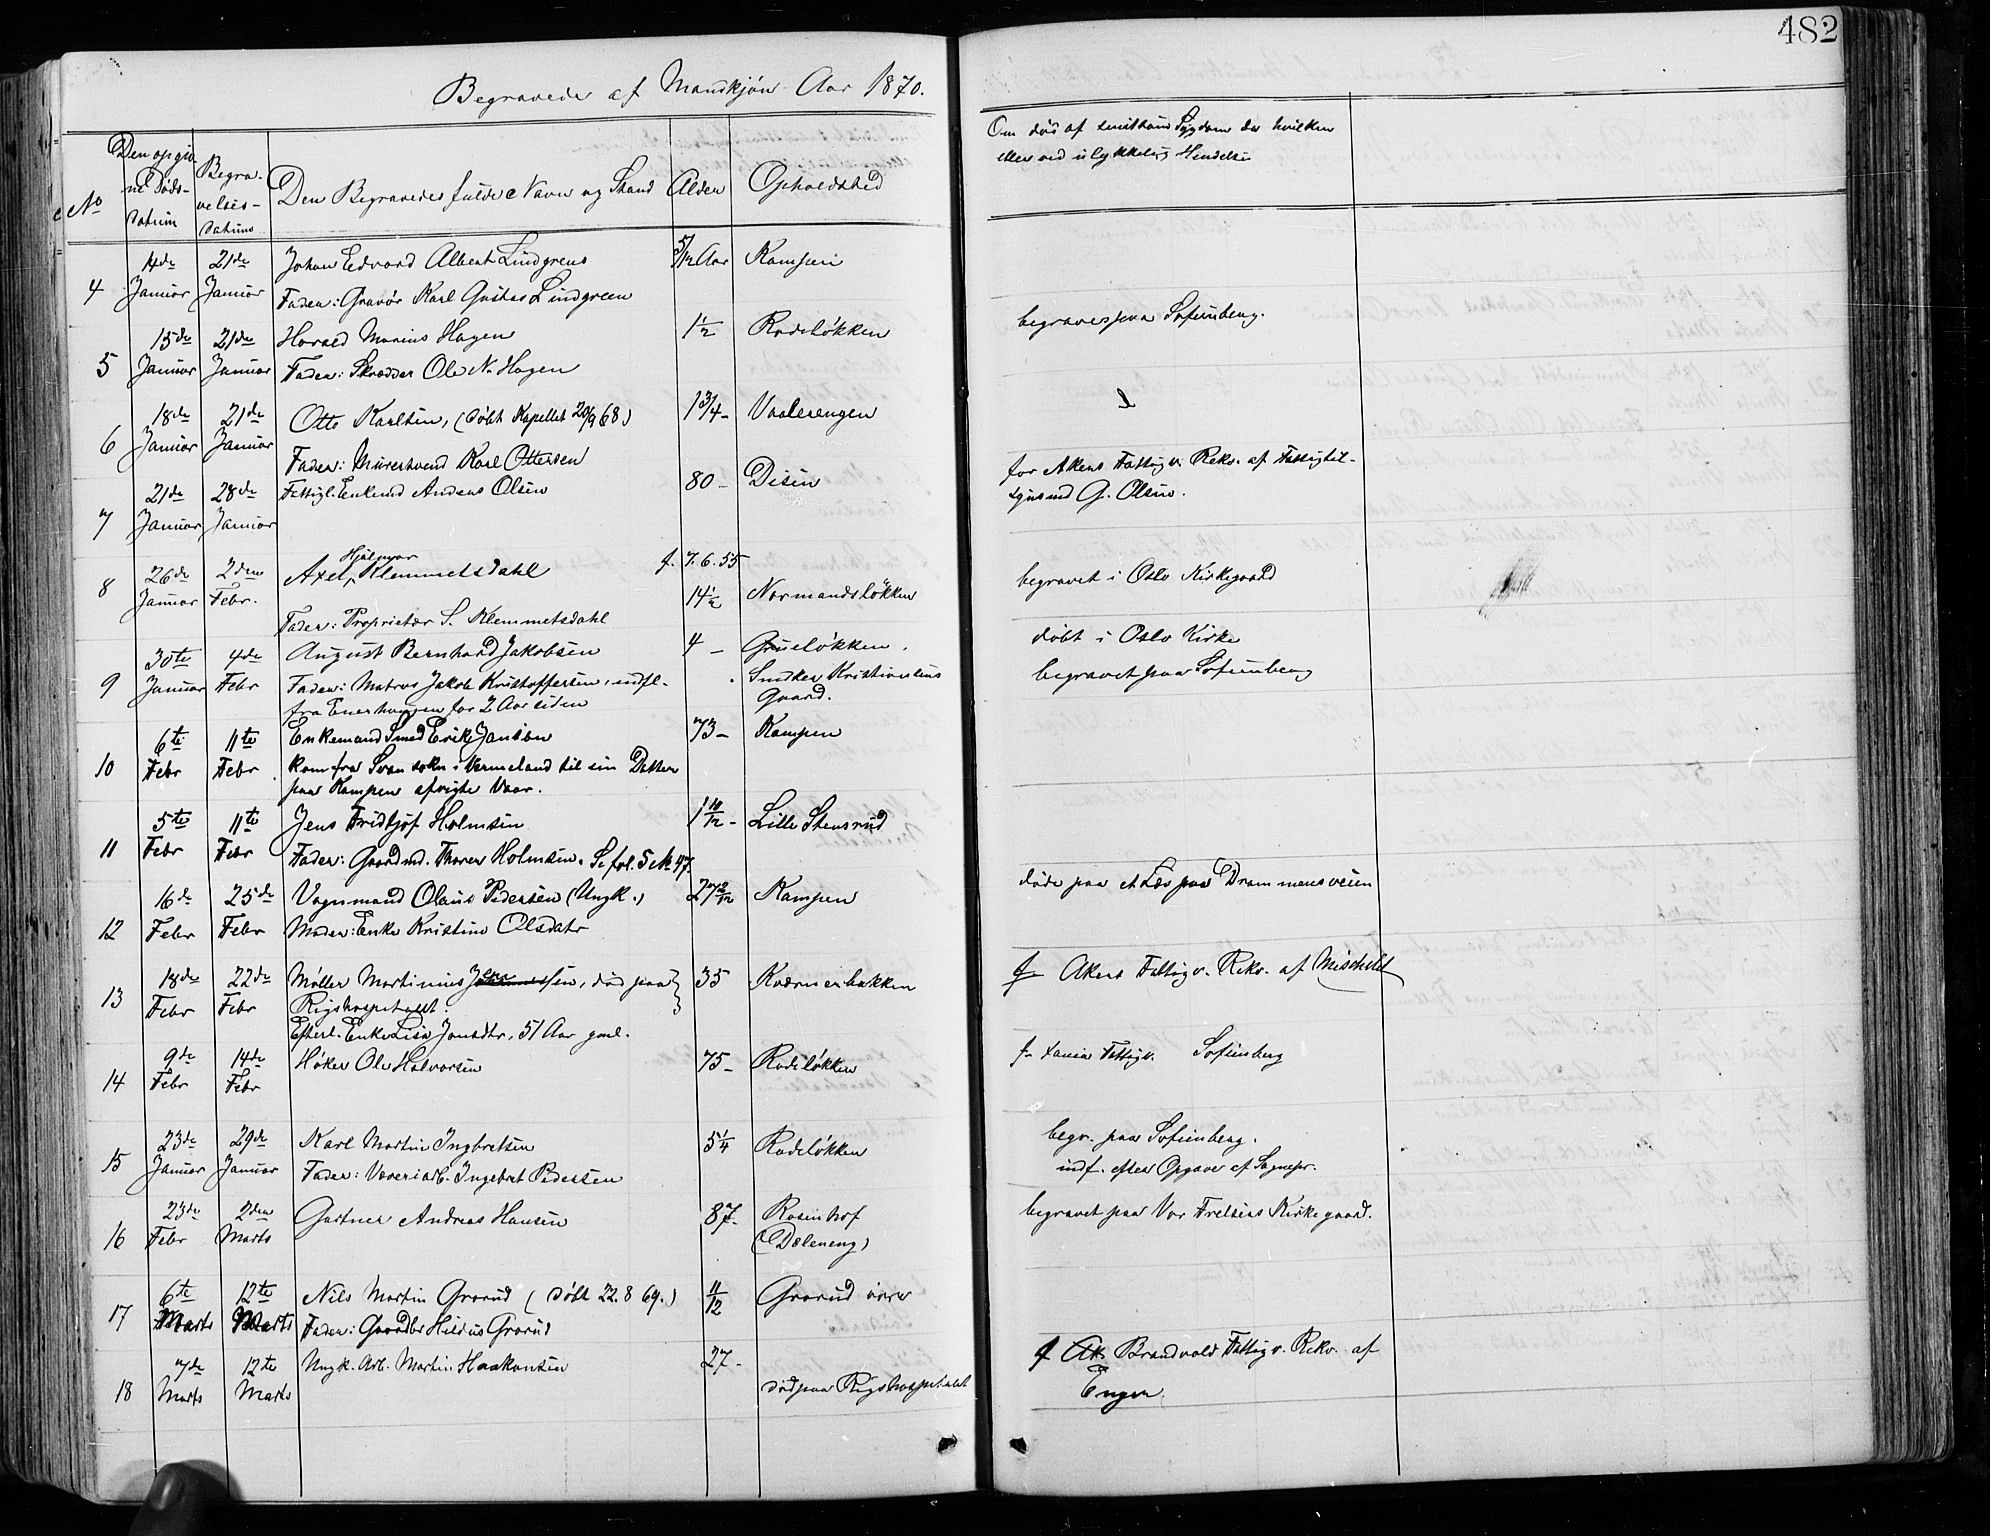 482
Begravede af Mandkjøn Aar 1870.
No
Den opgiv
ne Døds-
datum
Begra-
velses-
datums
Den Begravedes fulde Navn og Stand
Alder
Opholdsted
Om død af smitsom Sygdom da hvilken
eller ved ulykkelig Hendelse
4 14de Januar 21de Januar Johan Edvard Albert Lindgrens 5/12 Aar Kampen
Fader: Gravør Karl Gustav Lindgreen
5 15de Januar 21de Januar Harald Marius Hagen 1½ Rodeløkken begraves paa Sofienberg.
Fader: Skrædder Ole N. Hagen
6 18de Januar 21de Januar Otto Karlsen, (døbt Kapellet 20/9 68) 1¾ - Vaalerengen
Fader: Murersvend Karl Ottersen
7 21de Januar 28de Januar Fattigl. Enkemd Anders Olsen 80 - Disen for Akers Fattigv. Rekv. af Fattigtil-
synsmd G. Olsen.
8 26de Januar 2den Febr. Axel Hjalmar Klemmetsdahl f. 7.6.55
14½ Normandsløkken begravet i Oslo Kirkegaard
Fader: Proprietær S. Klemmetsdahl
9 30te Januar 4de Febr August Bernhard Jakobsen 4 - Grueløkken. døbt i Oslo Kirke
Fader: Matros Jakob Kristoffersen, indfl. Snedker Kristiansens begravet paa Sofienberg
fra Enerhaugen for 2 Aar siden Gaard.
10 6te Febr 11te Febr Enkemand Smed Erik Jansen 73 - Kampen
kom fra Svansokn i Vermeland til sin Datter
paa Kampen afvigte Vaar.
11 5te Febr 11te Febr Jens Fridtjof Holmsen 1 10/12 - Lille Stensrud
Fader: Gaardmd. Thorer Holmsen. Se fol. 5 No 47.
12 16de Febr 25de Febr Vognmand Olaus Pedersen (Ungk.) 27 2/12 Kampen døde paa et Læs paa Drammensveien
Moder: Enke Kristine Olsdatr
13 18de Febr 22de Febr Møller Martinius Jensen, død paa 35 Kværnerbakken f Akers Fattigv. Rekv. af Mischelet
Rigshospitalet.
Efterl. Enke Lisa Jonsdtr, 51 Aar gml.
14 9de Febr 14de Febr Høker Ole Halvorsen 75 - Rodeløkken f. Fattigv. Sofienberg
15 23de Januar 29de Januar Karl Martin Ingbretsen 5¼ Rodeløkken begr. paa Sofienberg.
Fader: Væveriarb. Ingebret Pedersen indf. efter Opgave af Sognepr.
16 23de Febr 2den Marts Gartner Andreas Hansen 87. Rosenhof begravet paa Vor Frelsers Kirkegaard.
(Dæleneng)
17 6te Marts 12te Marts Nils Martin Grorud (døbt 22.8 69.) 11/12 Grorud øvre
Fader: Gaardbr Hildus Grorud
18 7de Marts 12te Marts Ungk. Arb. Martin Haakonsen 27 - f Ak Brandvold Fattigv. Rekv. af
død paa Rigshospitalet Engen